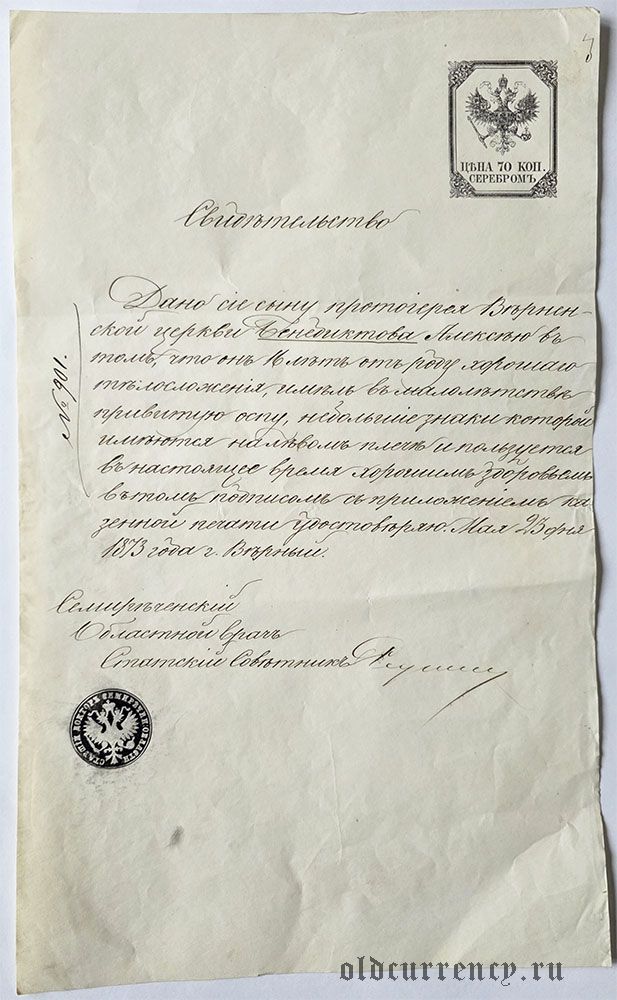 ЦѢНА 70 КОП.
СЕРЕБРОМЪ
Свидѣтельство
№ 106.
Дано сіе сыну протоіерея Вѣрнен-
ской церкви Бенедиктова Алексѣю въ
томъ, что онъ лѣтъ отъ роду хорошаго
тѣлосложенія, имѣлъ въ малолѣтствѣ
привитую оспу, небольшіе знаки которой
имѣются на лѣвомъ плечѣ и пользуется
въ настоящее время хорошимъ здоровьемъ
въ томъ подписомъ съ приложеніемъ ка-
зенной печати удостовѣряю. Мая 23 дня
1873 года г. Вѣрный.
Семирѣченскій
Областной врачъ
Статскій Совѣтникъ
СТАРШІЙ ДОКТОРЪ
oldcurrency.ru